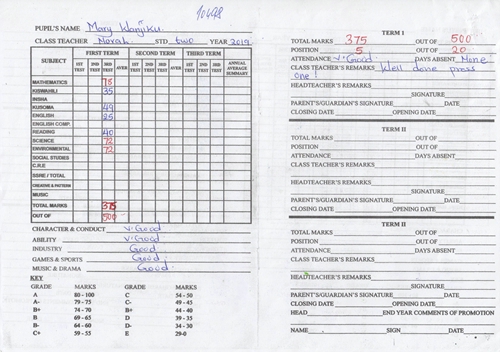 10498
PUPIL'S NAME Mary Wanjiku
CLASS TEACHER Norah STD two YEAR 2019
SUBJECT FIRST TERM SECOND TERM THIRD TERM ANNUAL AVERAGE SUMMARY
1ST TEST 2ND TEST 3RD TEST AVER 1ST TEST 2ND TEST 3RD TEST AVER 1ST TEST 2ND TEST 3RD TEST AVER
MATHEMATICS 75
KISWAHILI 35
INSHA
KUSOMA 49
ENGLISH 25
ENGLISH COMP.
READING 40
SCIENCE 72
ENVIRONMENTAL 72
SOCIAL STUDIES
C.R.E
SSRE / TOTAL
CREATIVE & PATTERN
MUSIC
TOTAL MARKS 375
OUT OF 500
CHARACTER & CONDUCT V. Good
ABILITY V. Good
INDUSTRY Good
GAMES & SPORTS Good
MUSIC & DRAMA Good
KEY
GRADE MARKS GRADE MARKS
A 80 - 100 C 54 - 50
A- 79 - 75 C- 49 - 45
B+ 74 - 70 B+ 44 - 40
B 69 - 65 D 39 - 35
B- 64 - 60 D- 34 - 30
C+ 59 - 55 E 29-0
TERM I
TOTAL MARKS 375 OUT OF 500
POSITION 5 OUT OF 20
ATTENDANCE V. Good DAYS ABSENT None
CLASS TEACHER'S REMARKS Well done press
one!
HEADTEACHER'S REMARKS
SIGNATURE
PARENT'S/GUARDIAN'S SIGNATURE DATE
CLOSING DATE OPENING DATE
TERM II
TOTAL MARKS OUT OF
POSITION OUT OF
ATTENDANCE DAYS ABSENT
CLASS TEACHER'S REMARKS
HEADTEACHER'S REMARKS
SIGNATURE
PARENT'S/GUARDIAN'S SIGNATURE DATE
CLOSING DATE OPENING DATE
TERM II
TOTAL MARKS OUT OF
POSITION OUT OF
ATTENDANCE DAYS ABSENT
CLASS TEACHER'S REMARKS
HEADTEACHER'S REMARKS
SIGNATURE
PARENT'S/GUARDIAN'S SIGNATURE DATE
CLOSING DATE OPENING DATE
HEAD END YEAR COMMENTS OF PROMOTION
NAME SIGN DATE